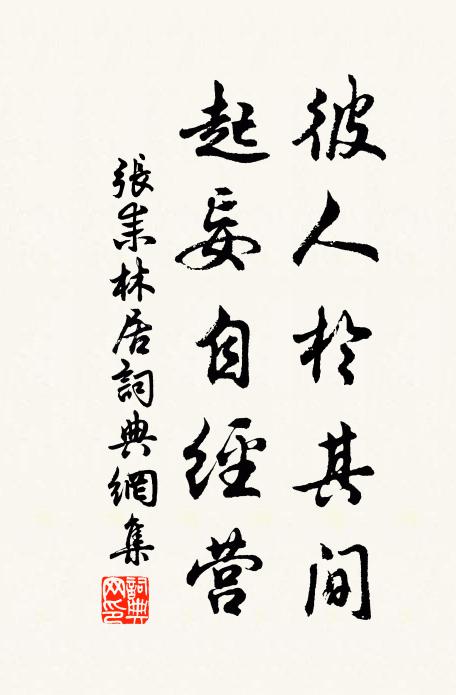 彼人於其间
起妄自經营
張耒林居詞典網集
詞典网印